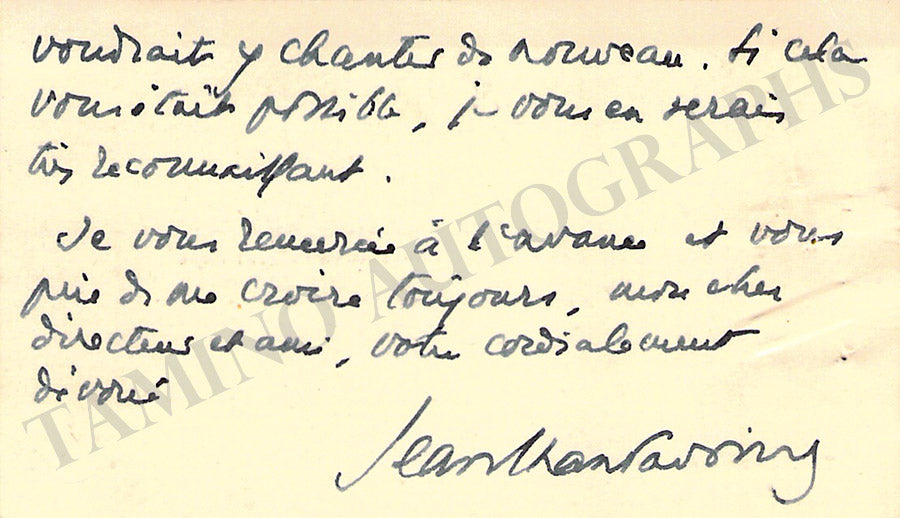 voudrait y chanter de nouveau. Si cela
vous était possible, je vous en serais
très reconnaissant.
Je vous remercie à l'avance et vous
prie de me croire toujours, mon cher
directeur et ami, votre cordialement
dévoué
Jean
TAMINO AUTOGRAPHS